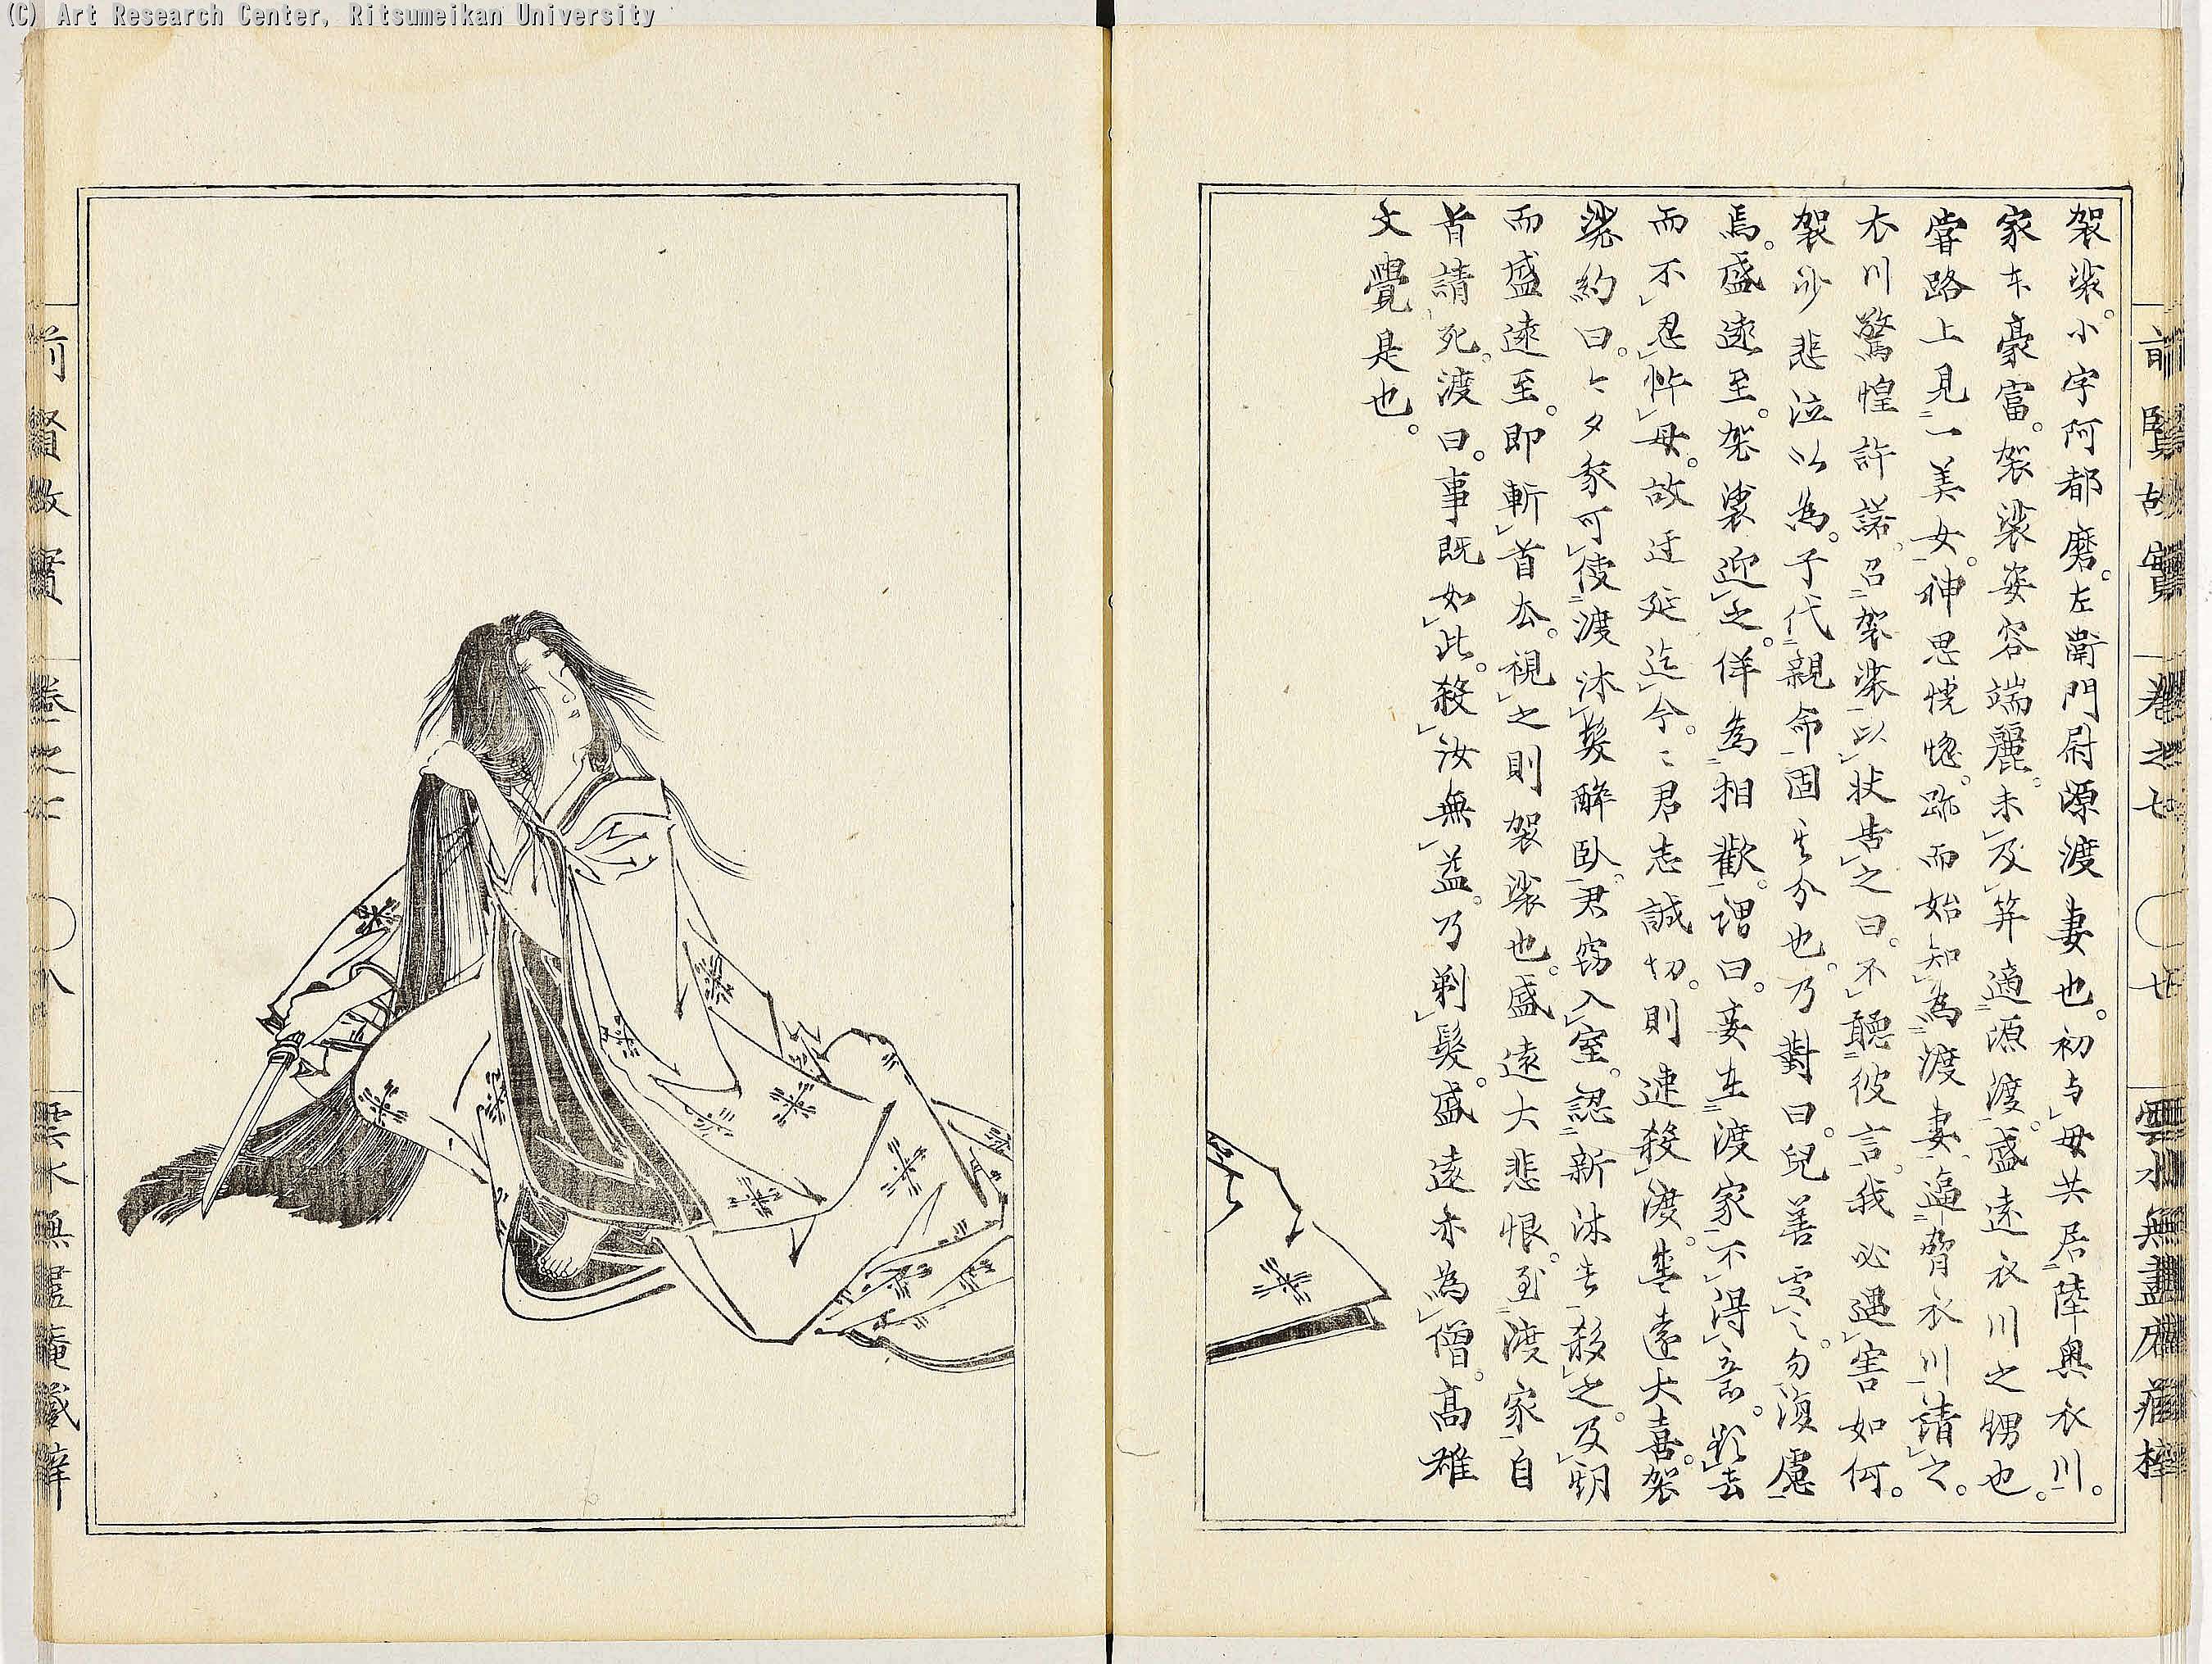 (C) Art Research Center, Ritsumeikan University
前賢故實 卷之七 ○ 七 雲水無盡庵藏梓
袈裟。小字阿都磨。左衛門尉源渡妻也。初与母共居陸奥衣川。
家本豪富。袈裟姿容端麗。未及笄適源渡。盛遠衣川之甥也。
嘗路上見一美女。神思恍惚。跡而始知為渡妻。逼脅衣川請之。
衣川驚惶許諾。召袈裟以状告之曰。不聽彼言。我必遇害如何。
袈沙悲泣以為。子代親命固其分也。乃對曰。兒善处之。勿復慮
焉。盛遠至。袈裟迎之。佯為相歡。謂曰。妾在渡家不得志。欲去
而不忍悖母。故迂延迄今。君志誠切。則速殺渡。盛遠大喜。袈
裟約曰。今夕家可使渡沐髮醉臥。君窃入室。認新沐者殺之。及期
而盛遠至。即斬首去。視之則袈裟也。盛遠大悲恨。至渡家自
首請死。渡曰。事既如此。殺汝無益。乃剃髮。盛遠亦為僧。高雄
文覺是也。
前賢故實 卷之七 ○ 八 雲水無盡庵藏梓